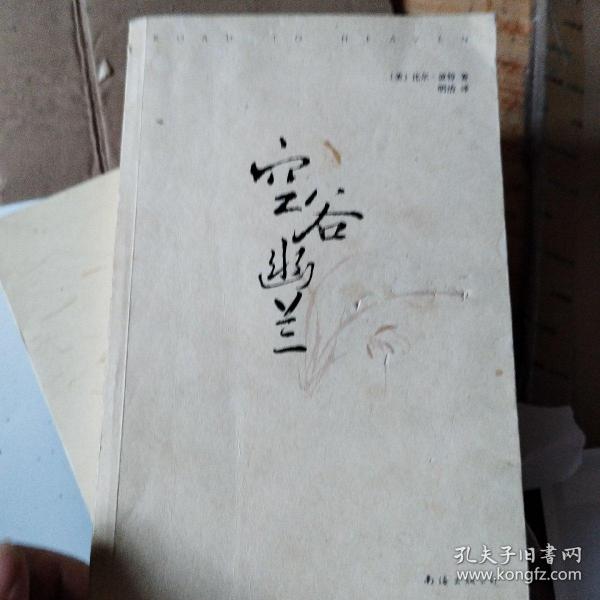 ROAD TO HEAVEN
［美］比尔·波特 著
明洁 译
空谷幽兰
南海出版公司
孔夫子旧书网
www.kongfz.com